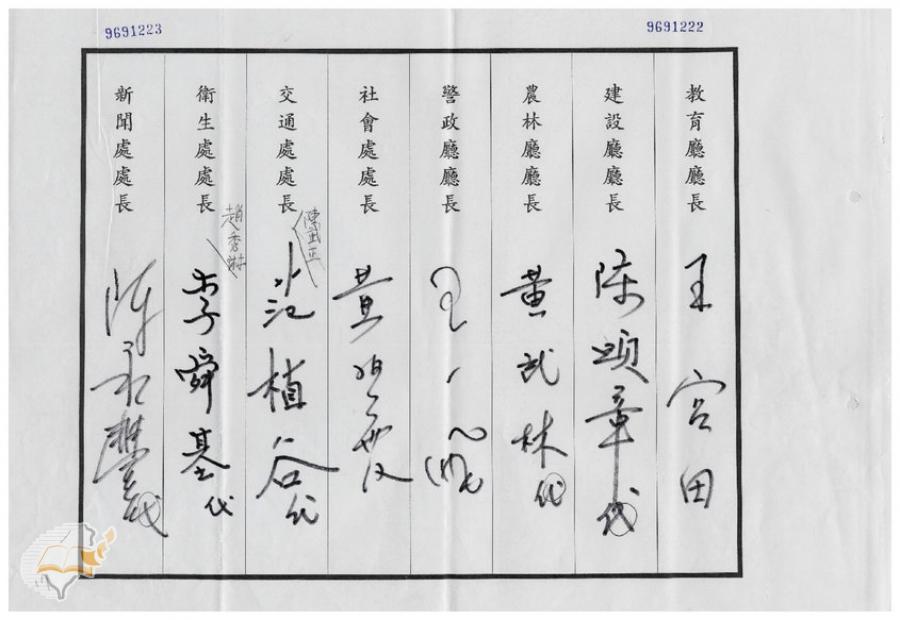 9691222
9691223
教育廳廳長 王宮田
建設廳廳長 陳頌章代
農林廳廳長 黃武林代
警政廳廳長 王一飛
社會處處長 黃
交通處處長 陳武正 植谷代
衛生處處長 趙秀琳 李舜基代
新聞處處長 陳永豐代